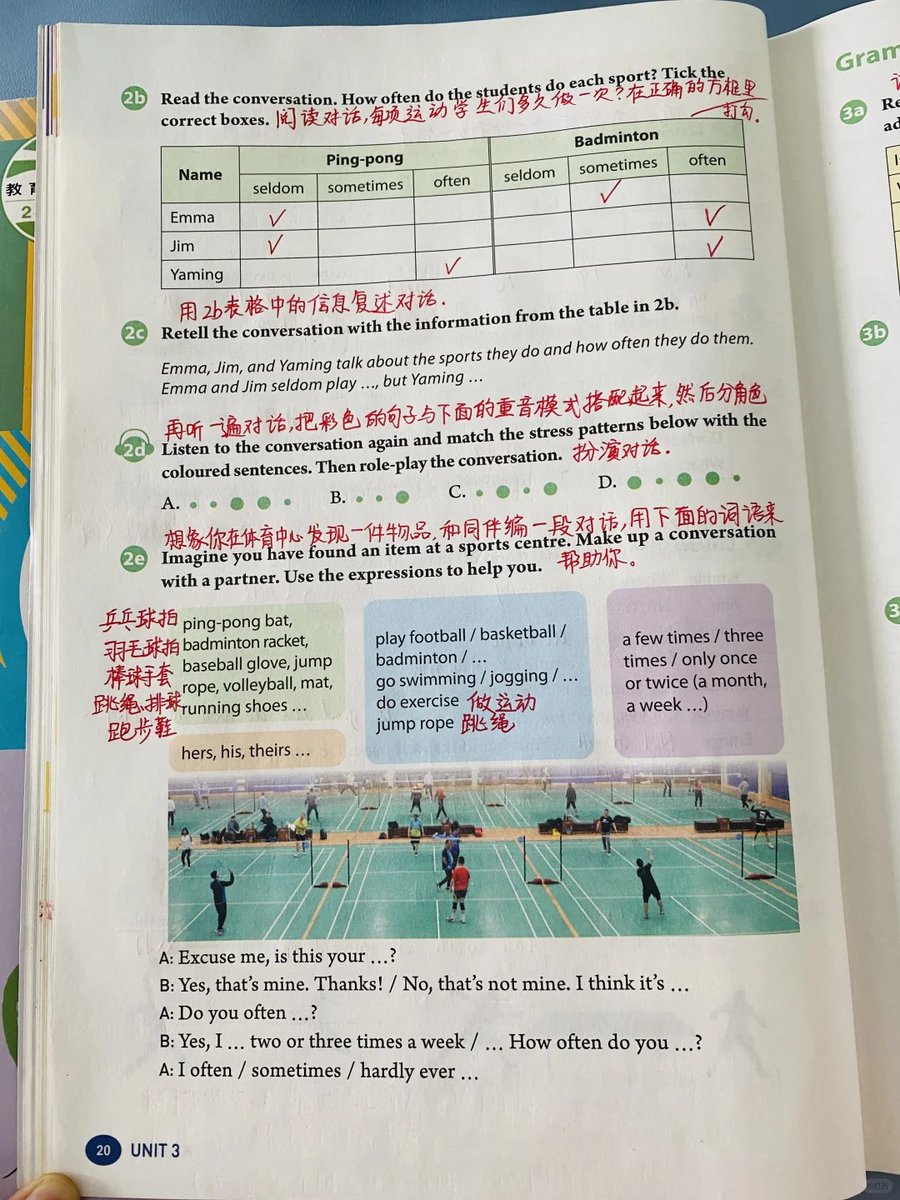 2b Read the conversation. How often do the students do each sport? Tick the
correct boxes. 阅读对话,每项运动学生们多久做一次?在正确的方框里
打勾.
Name Ping-pong Badminton
seldom sometimes often seldom sometimes often
Emma ✓ ✓
Jim ✓ ✓
Yaming ✓ ✓
用2b表格中的信息复述对话.
2c Retell the conversation with the information from the table in 2b.
Emma, Jim, and Yaming talk about the sports they do and how often they do them.
Emma and Jim seldom play …, but Yaming …
再听一遍对话,把彩色的句子与下面的重音模式搭配起来,然后分角色
2d Listen to the conversation again and match the stress patterns below with the
coloured sentences. Then role-play the conversation. 扮演对话.
A. B. C. D.
想象你在体育中心发现一件物品,和同伴编一段对话,用下面的词语来
2e Imagine you have found an item at a sports centre. Make up a conversation
with a partner. Use the expressions to help you. 帮助你。
乒乓球拍 ping-pong bat,
羽毛球拍 badminton racket,
棒球手套 baseball glove, jump
跳绳、排球 rope, volleyball, mat,
跑步鞋 running shoes …
hers, his, theirs …
play football / basketball /
badminton / …
go swimming / jogging / …
do exercise 做运动
jump rope 跳绳
a few times / three
times / only once
or twice (a month,
a week …)
A: Excuse me, is this your …?
B: Yes, that's mine. Thanks! / No, that's not mine. I think it's …
A: Do you often …?
B: Yes, I … two or three times a week / … How often do you …?
A: I often / sometimes / hardly ever …
20 UNIT 3
Gram
3a Re
ad
3b
教育
2